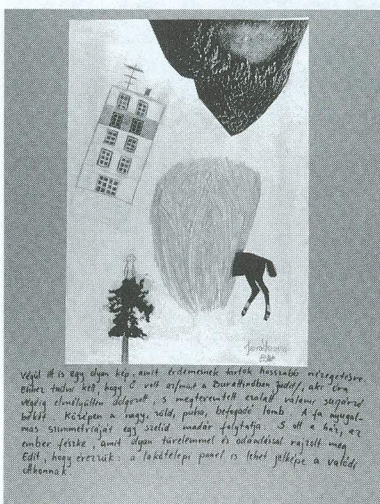 Jónás Tamásné
Edit
Végül itt is egy olyan kép, amit érdemesnek tartok hosszabb nézegetésre.
Ehhez tudni kell, hogy Ő volt az, mint a Burattinoban Judit, aki óra
végéig elmélyülten dolgozott, s megteremtett ezalatt valami sugárzó
békét. Középen a nagy, zöld, puha, befogadó lomb. A fa nyugal-
mas szimmetriáját egy szelíd madár folytatja. S ott a ház, az
ember fészke, amit olyan türelemmel és odaadással rajzolt meg
Edit, hogy érezzük: a lakótelepi panel is lehet jelképe a valódi
otthonnak.